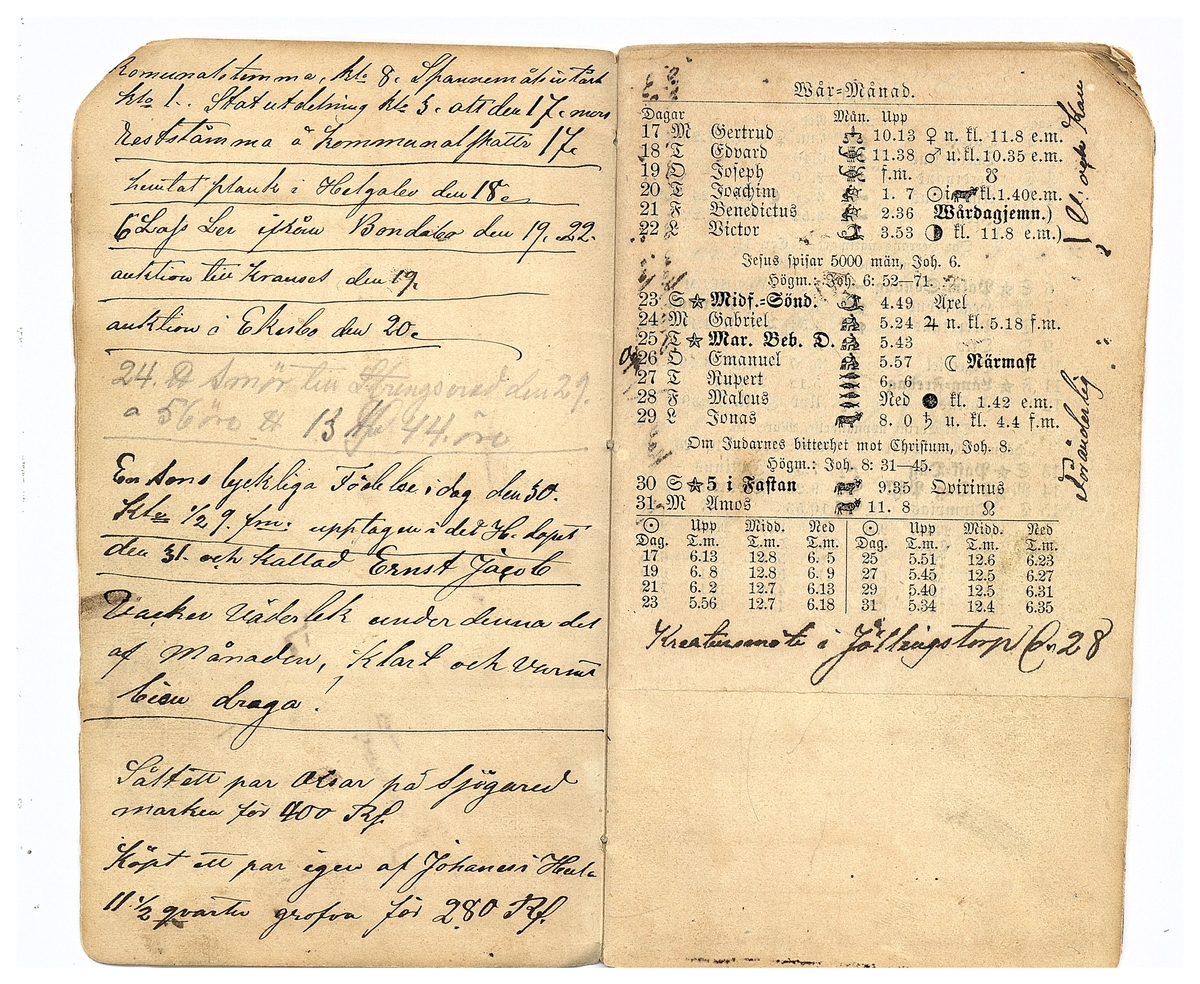 Komunalstemma, klo 8. Spannemåls intäkt
klo 1. Statutdelning klo 3. allt den 17. mars
Reststämma å Kommunalskatte 17.
hemtat plank i Helgabo den 18.
6 Lass Ler ifrån Bondabo den 19. 22.
auktion till Kranset den 19.
auktion i Ekesbo den 20.
24 ℔ Smör till den 29.
a 56 öre ℔ 13 44. öre
En Sons lyckliga Födelse i dag den 30.
Klo 1/2 9. fm: upptagen i det H. dopet
den 31. och kallad Ernst Jacob
Vacker Väderlek under denna del
af Månaden, Klart och varmt
bien draga!
Sålt ett par Oxar på Sjögared
marken för 400 Rf.
Köpt ett par igen af Johannes i
11 1/2 quarter grofva för 280 Rf.
Wår-Månad.
Dagar Mån. Upp
17 M Gertrud 10.13 ♀ n. kl. 11.8 e.m.
18 T Edvard 11.38 ♂ u. kl. 10.35 e.m.
19 O Joseph f.m. ☋
20 T Joachim 1. 7 ☉ i ♈ kl. 1.40 e.m.
21 F Benedictus 2.36 Wårdagjemn.)
22 L Victor 3.53 ◑ kl. 11.8 e.m.)
Jesus spisar 5000 män, Joh. 6.
Högm.: Joh. 6: 52—71.
23 S ☆ Midf.-Sönd. 4.49 Axel
24 M Gabriel 5.24 ♃ n. kl. 5.18 f.m.
25 T ☆ Mar. Beb. D. 5.43
26 O Emanuel 5.57 ☾ Närmast
27 T Rupert 6. 6
28 F Malcus Ned ● kl. 1.42 e.m.
29 L Jonas 8. 0 ♄ u. kl. 4.4 f.m.
Om Judarnes bitterhet mot Christum, Joh. 8.
Högm.: Joh. 8: 31—45.
30 S ☆ 5 i Fastan 9.35 Qvirinus
31 M Amos 11. 8 ☊
☉ Upp Midd. Ned ☉ Upp Midd. Ned
Dag. T.m. T.m. T.m. Dag. T.m. T.m. T.m.
17 6.13 12.8 6. 5 25 5.51 12.6 6.23
19 6. 8 12.8 6. 9 27 5.45 12.5 6.27
21 6. 2 12.7 6.13 29 5.40 12.5 6.31
23 5.56 12.7 6.18 31 5.34 12.4 6.35
Kreatursmöte i Jällingstorp 28
Föränderlig